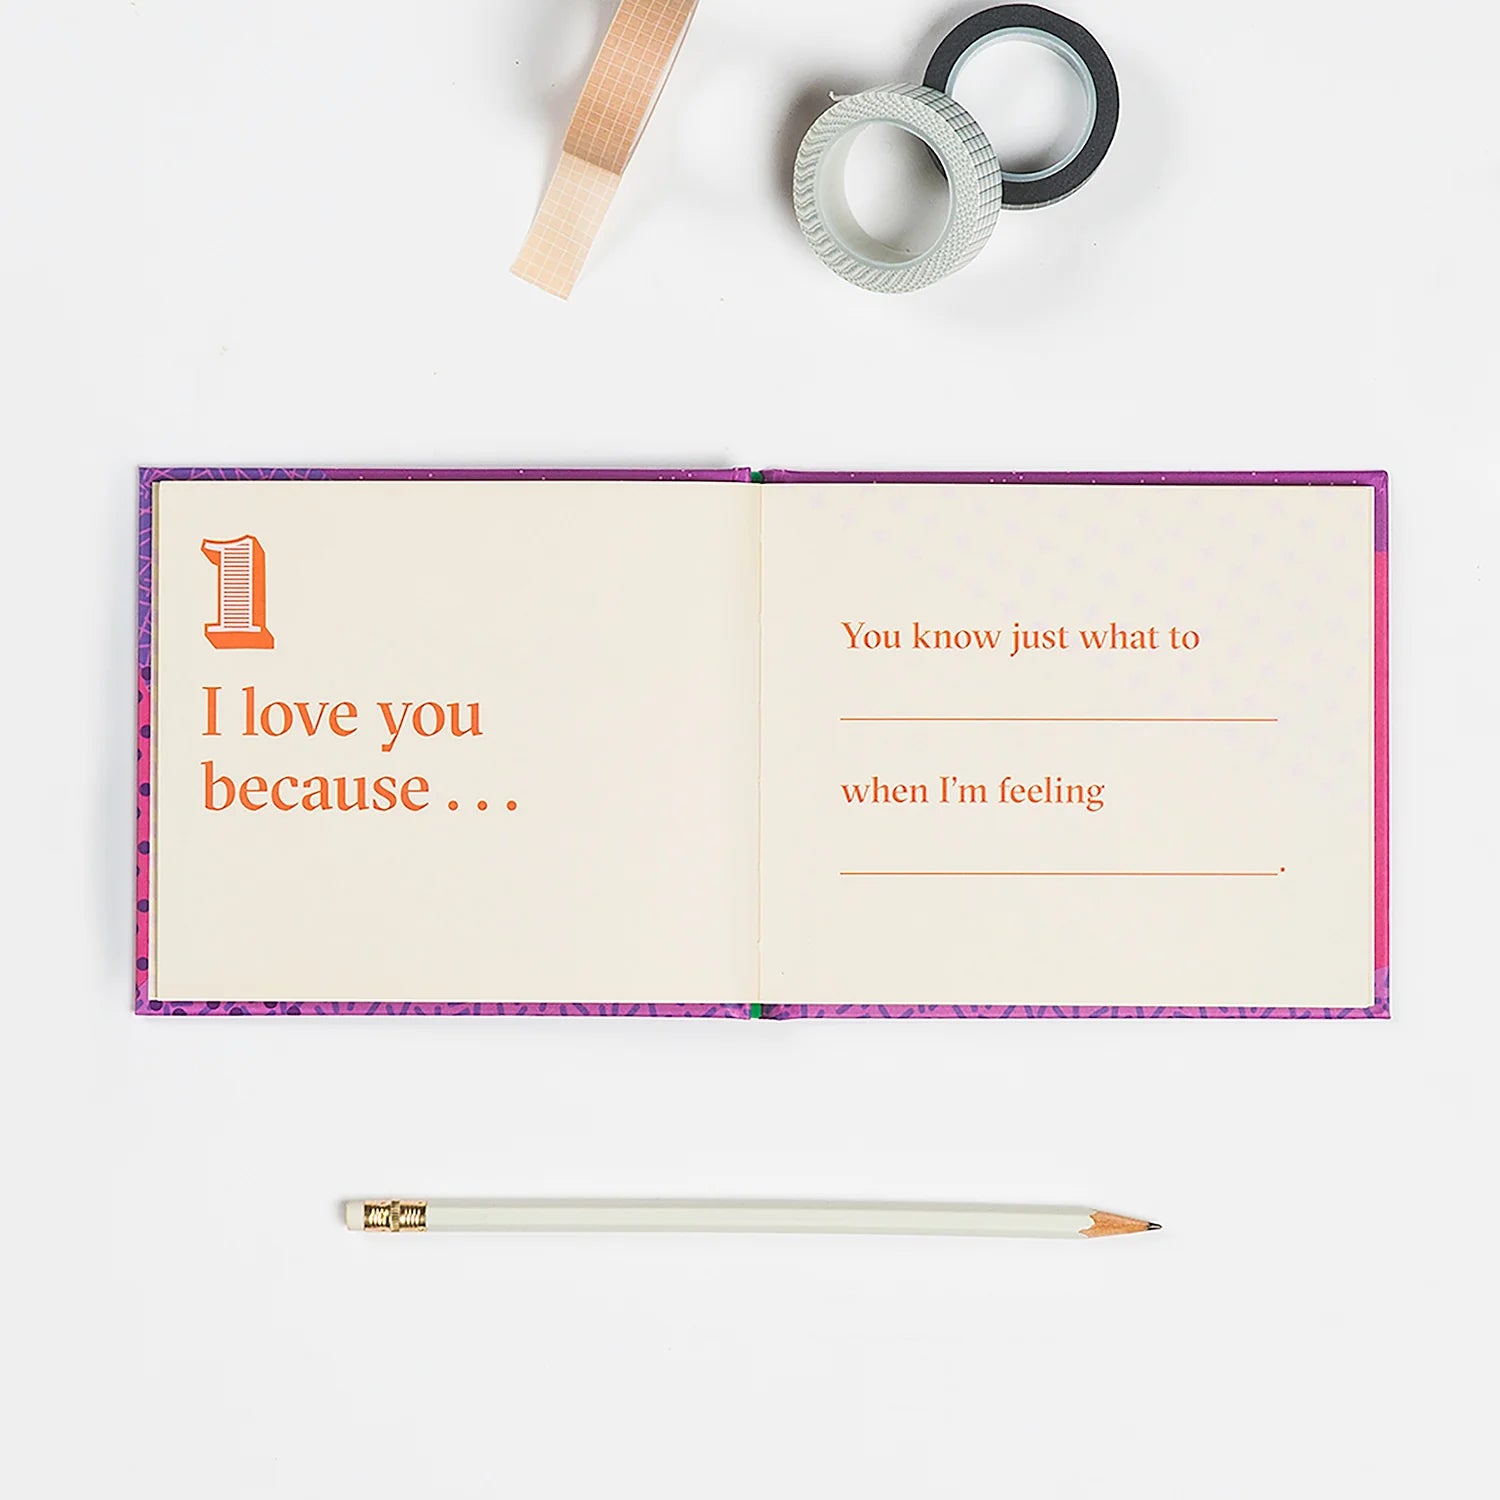 1
I love you
because . . .
You know just what to
when I'm feeling
.